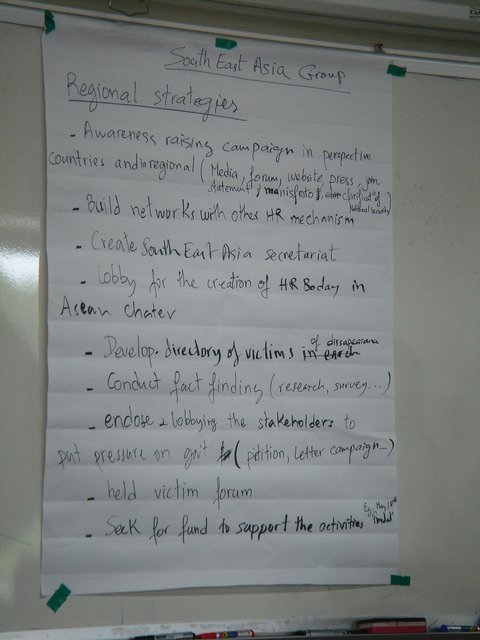 South East Asia Group
Regional strategies
- Awareness raising campaign in perspective
countries and regional (Media, forum, website press, join
statement, manisfesto, clarificat of
National security)
- Build networks with other HR mechanism
- Create South East Asia secretariat
- Lobby for the creation of HR Boday in
Asean Chater
- Develop directory of victims of dissapearance
in each
- Conduct fact finding (research, survey...)
- endose & lobbying the stakeholders to
put pressure on gov't (petition, Letter campaign...)
- held victim forum
- Seek for fund to support the activities